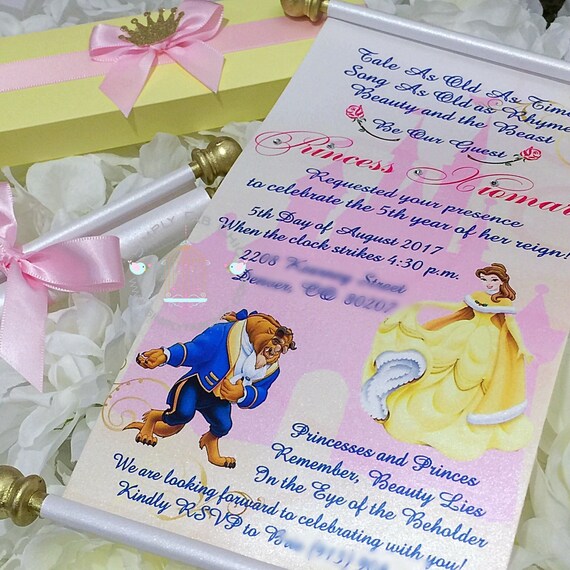 Tale As Old As Time
Song As Old as Rhyme
Beauty and the Beast
Be Our Guest
Princess
Requested your presence
to celebrate the 5th year of her reign!
5th Day of August 2017
When the clock strikes 4:30 p.m.
2208 Street
Denver, CO 80207
Princesses and Princes
Remember, Beauty Lies
In the Eye of the Beholder
We are looking forward to celebrating with you!
Kindly RSVP to